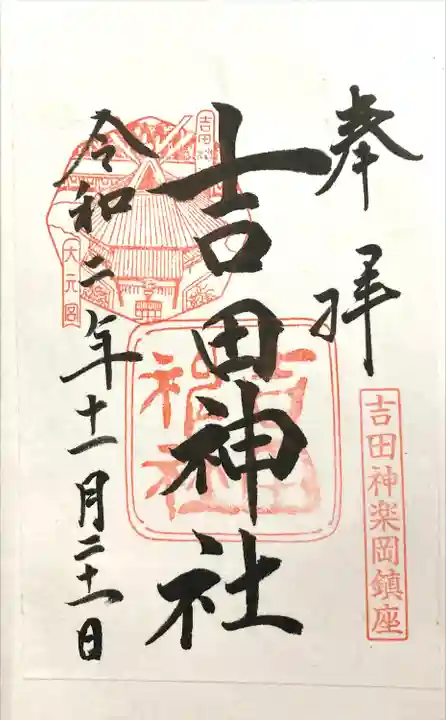 奉拝
吉田神楽岡鎮座
吉田神社
吉田神社
令和二年十一月二十一日
大元宮